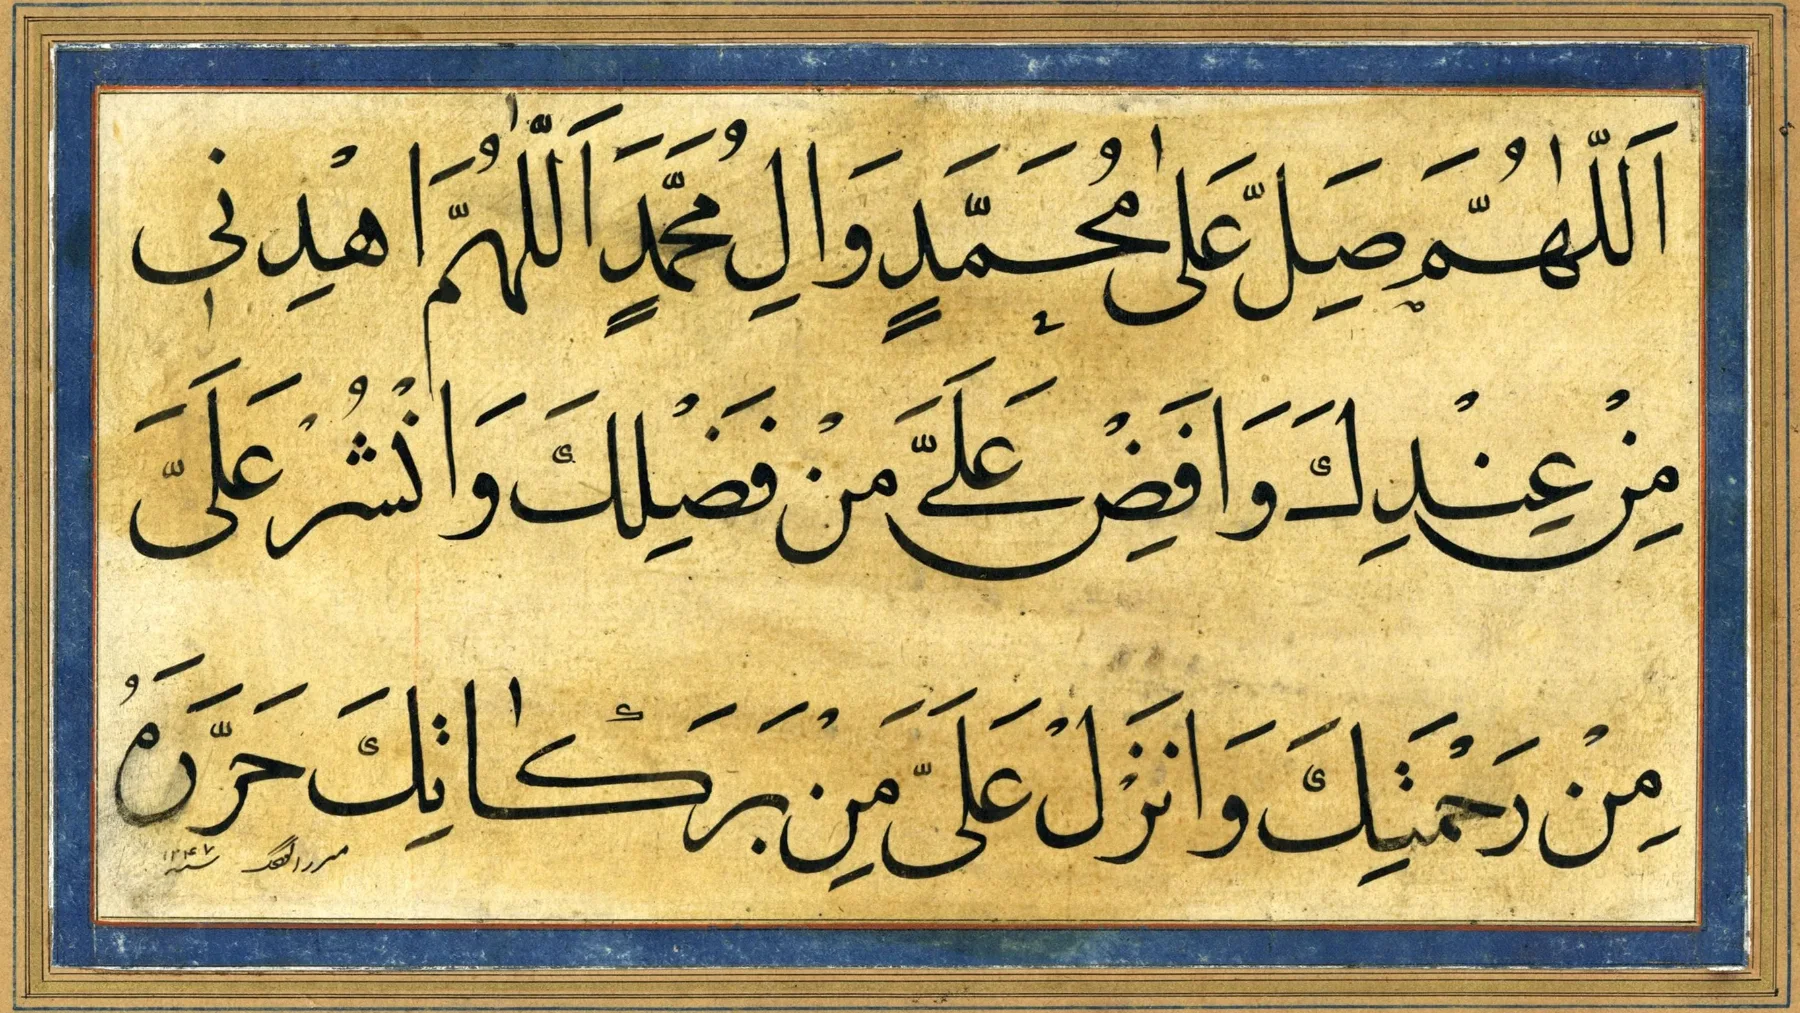 اَللّٰهُمَّ صَلِّ عَلىٰ مُحَمَّدٍ وَالِ مُحَمَّدٍ اَللّٰهُمَّ اهْدِنى
مِنْ عِنْدِكَ وَاَفِضْ عَلَىَّ مِنْ فَضْلِكَ وَانْشُرْ عَلَىَّ
مِنْ رَحْمَتِكَ وَاَنْزِلْ عَلَىَّ مِنْ بَرَكٰاتِكَ حَرَّرَهُ
سنه ١٢٤٧